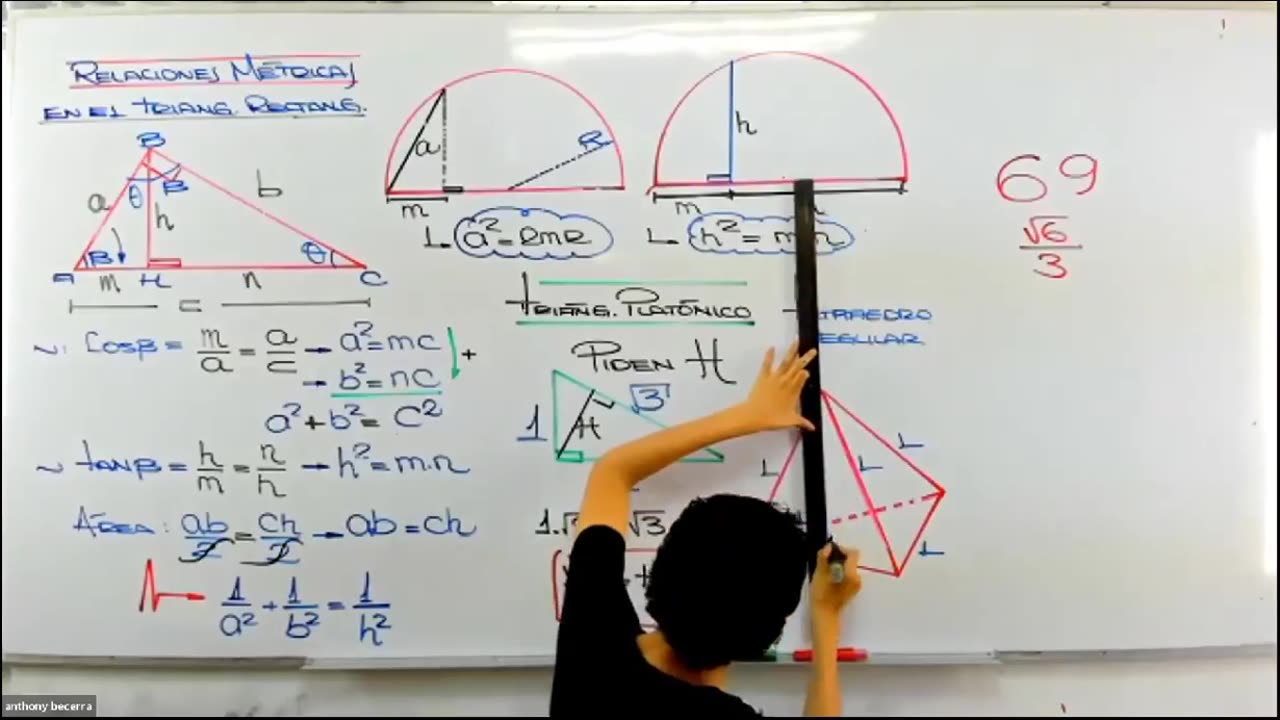 RELACIONES MÉTRICAS
EN EL TRIANG. RECTANG.
B
a
θ
β
b
h
β
θ
A
m
H
n
C
c
∼: COSβ = m/a = a/c → a²=mc
→ b²=nc
+
a²+b²= c²
∼ tanβ = h/m = n/h → h²=m.n
ÁREA: ab/2 = ch/2 → ab=ch
1/a² + 1/b² = 1/h²
a
R
m
a²=2mR
h
m
h²= m.n
TRIÁNG. PLATÓNICO
PIDEN H
1
H
√3
1.√
√3
REGULAR
L
L
L
L
69
√6/3
anthony becerra